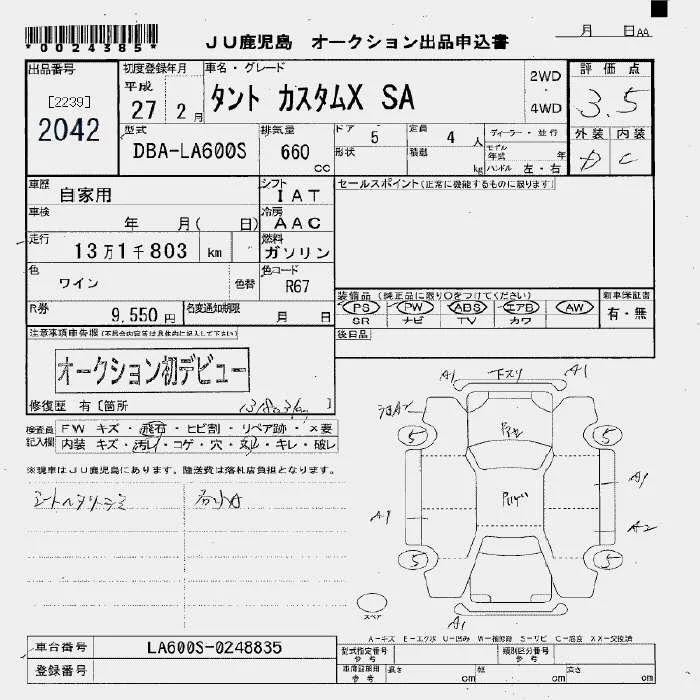 *0024385*
JU鹿児島 オークション出品申込書
月 日AA
出品番号
[2239]
2042
初度登録年月
平成
27 2月
車名・グレード
タント カスタムX SA
2WD
・
4WD
評価点
3.5
外装 内装
C
型式
DBA-LA600S
排気量
660
cc
ドア 5
形状
定員 4 人
積載 kg
ディーラー・並行
モデル年式 年
ハンドル 左・右
車歴
自家用
シフト
IAT
車検
年 月( 日)
冷房
AAC
走行
13万1千803 km
燃料
ガソリン
色
ワイン
色替
色コード
R67
R券
9,550円
名変通知期限
月 日
セールスポイント(正常に機能するものに限ります)
装備品(純正品に限り○をつけてください)
PS PW ABS エアB AW
SR ナビ TV カワ
新車保証書
有・無
後日品
注意事項車告欄
オークション初デビュー
修復歴 有〔箇所 〕
検査員記入欄
FW キズ・飛石・ヒビ割・リペア跡・×要
内装 キズ・汚れ・コゲ・穴・・キレ・破レ
※現車はJU鹿児島にあります。陸送費は落札店負担となります。
A1 下スリ A1
5 5
A1
A1
A2
5 5
スペア
A1
A-キズ E-エクボ U-凹み W-補修跡 S-サビ C-腐食 XX-交換済
車台番号
LA600S-0248835
登録番号
型式指定番号
参考
類別区分番号
参考
車庫証明用
参考
長さ cm
幅 cm
高さ cm